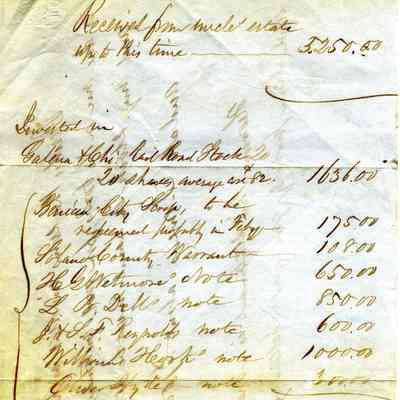 Received from uncle' estate
up to this time — 5.250.00
Invested in
Galena & Chi. Rail Road Stock
20 shares, average cost 82. 1636.00
City Scrip, to be
redeemed probably in Feby 175.00
County Warrant 108.00
H G Wetmores Note 650.00
L. note 850.00
J. & S. F. Reynolds note 600.00
note 1000.00
note 300.00